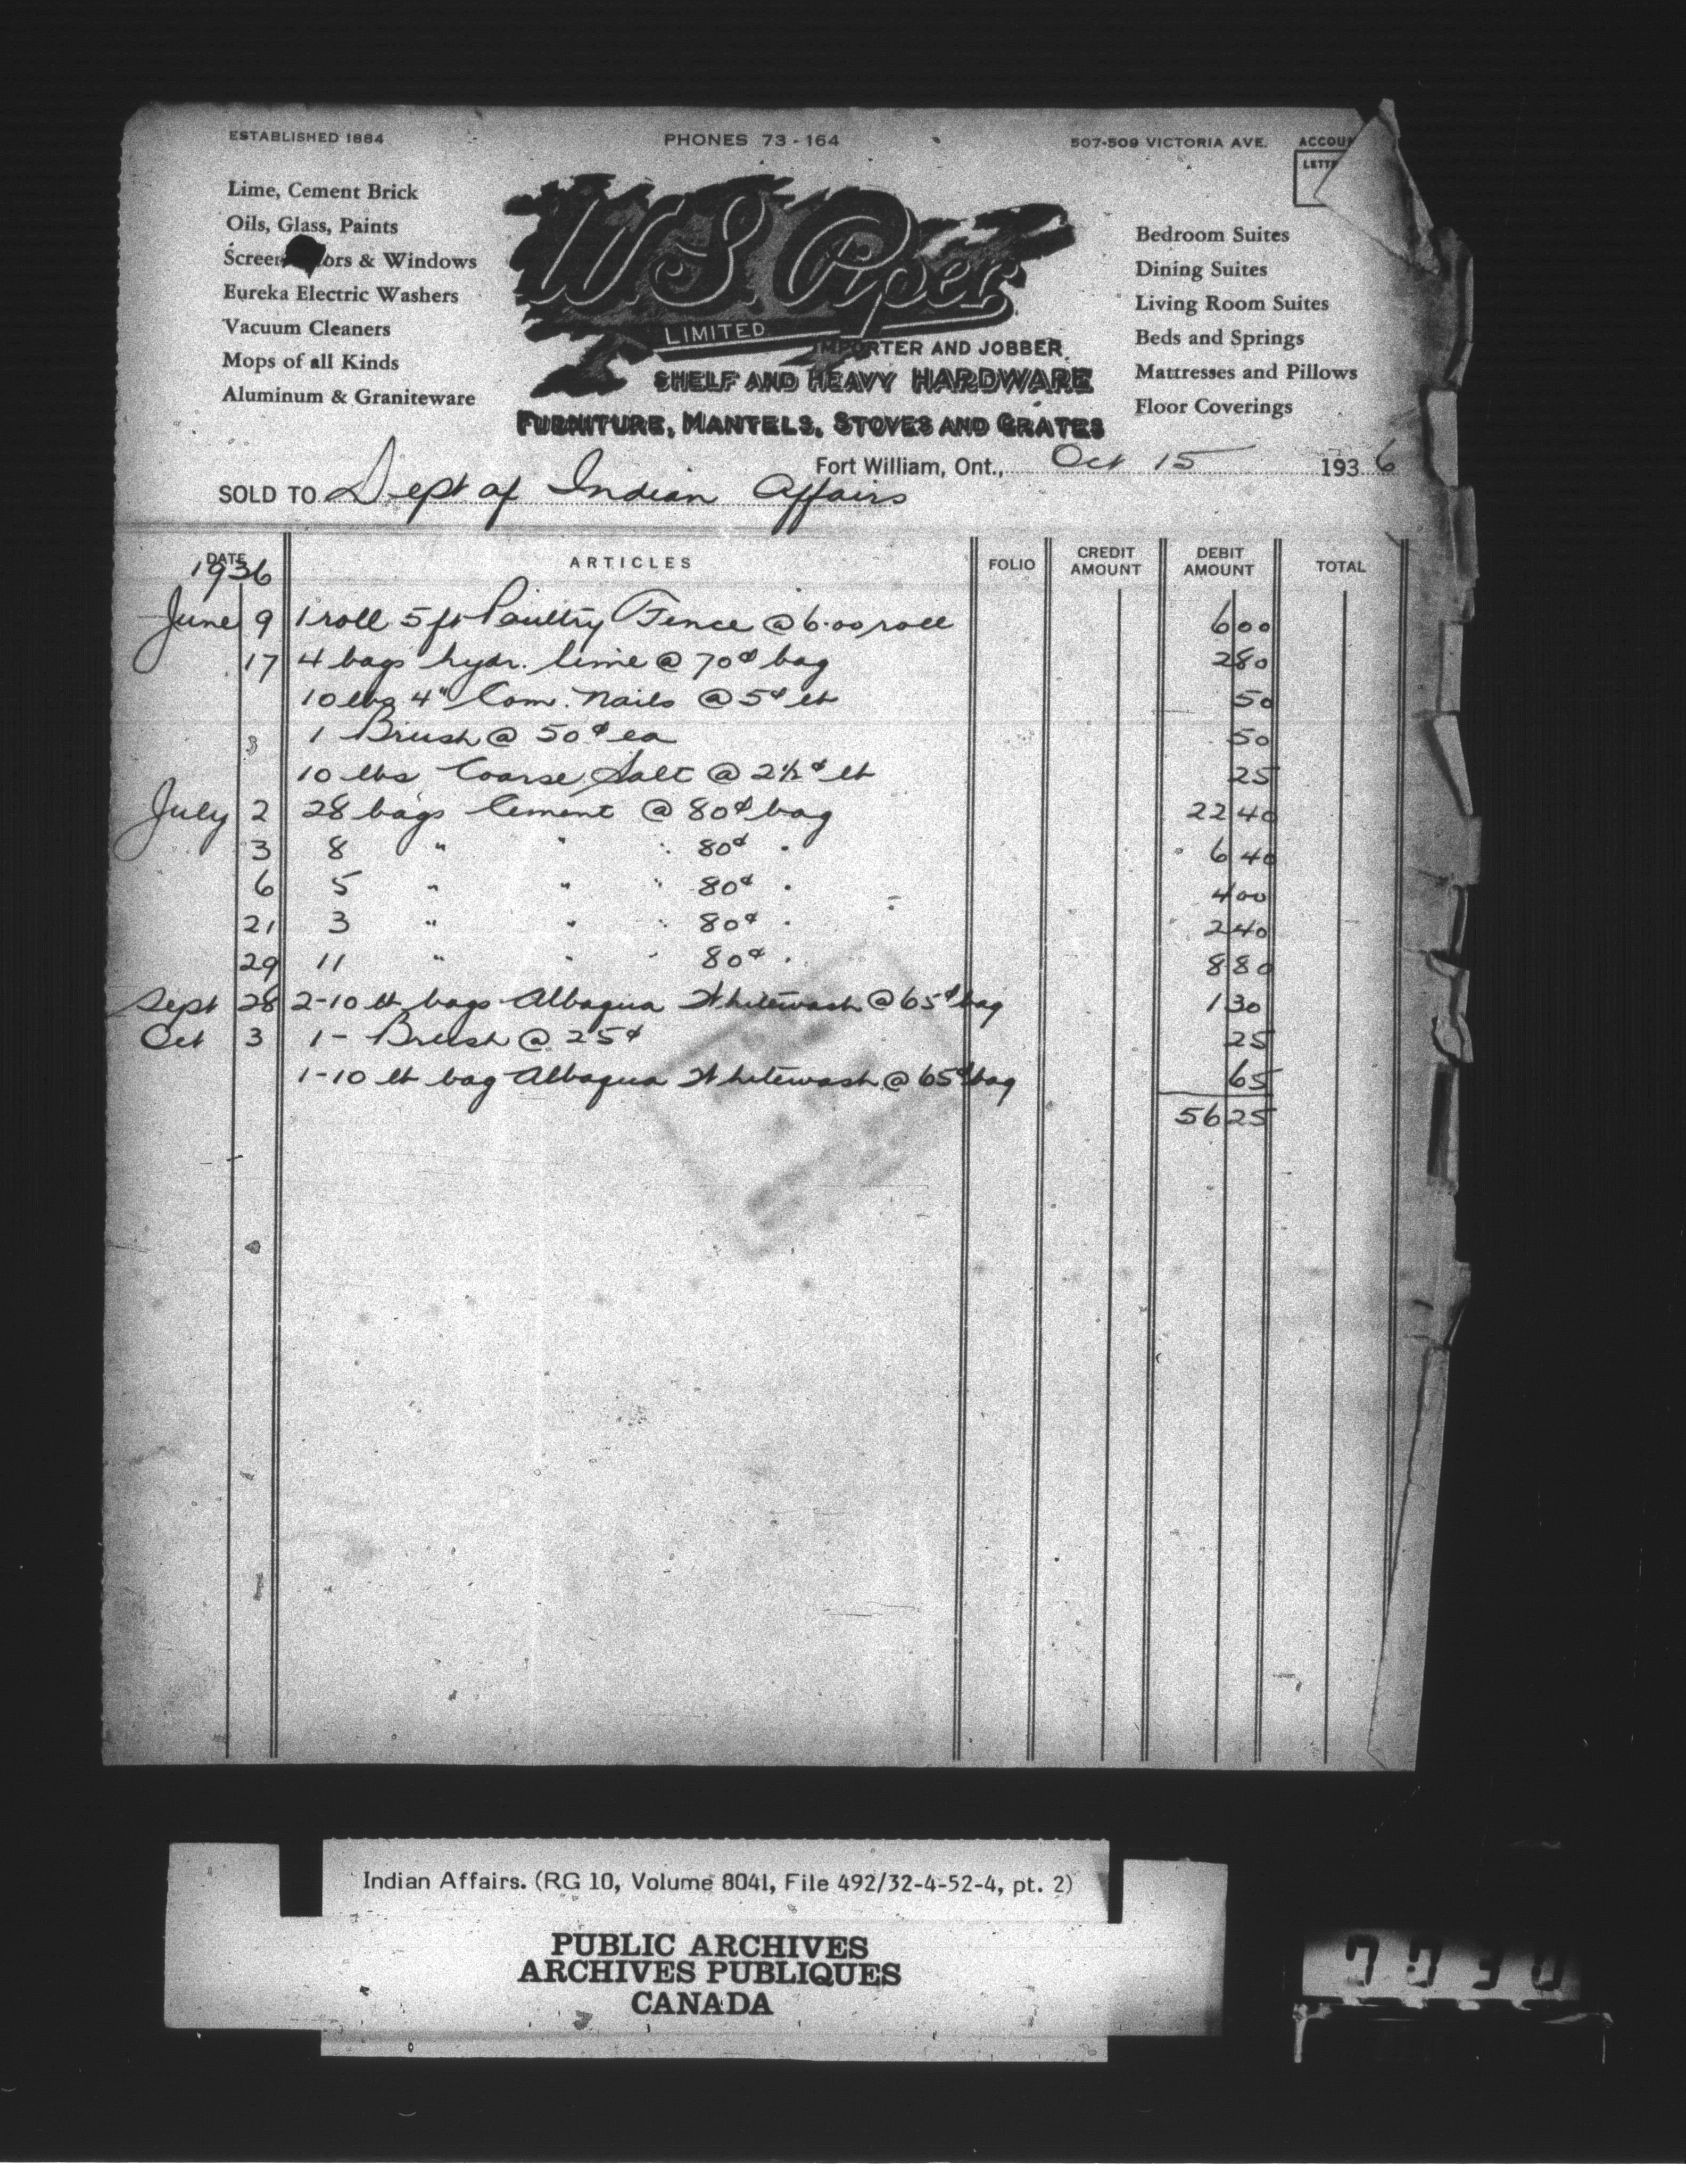 ESTABLISHED 1884
PHONES 73-164
507-509 VICTORIA AVE.
Lime, Cement Brick
Oils, Glass, Paints
& Windows
Eureka Electric Washers
Vacuum Cleaners
Mops of all Kinds
Aluminum & Graniteware
W. S. Piper
LIMITED
IMPORTER AND JOBBER
SHELF AND HEAVY HARDWARE
FURNITURE, MANTELS, STOVES AND GRATES
Bedroom Suites
Dining Suites
Living Room Suites
Beds and Springs
Mattresses and Pillows
Floor Coverings
Fort William, Ont., Oct 15 1936
SOLD TO Dept of Indian Affairs
DATE ARTICLES FOLIO CREDIT AMOUNT DEBIT AMOUNT TOTAL
1936
June 9 1 roll 5 ft Poultry Fence @ 6.00 roll 6 00
17 4 bags hydr. lime @ 70¢ bag 2 80
10 lbs 4" Com. Nails @ 5¢ lb 50
1 Brush @ 50¢ ea 50
10 lbs Coarse Salt @ 2½¢ lb 25
July 2 28 bags Cement @ 80¢ bag 22 40
3 8 " " " 80¢ " 6 40
6 5 " " " 80¢ " 4 00
21 3 " " " 80¢ " 2 40
29 11 " " " 80¢ " 8 80
Sept 28 2-10 lb bags Albaqua Whitewash @ 65¢ bag 1 30
Oct 3 1- Brush @ 25¢ 25
1-10 lb bag Albaqua Whitewash @ 65¢ bag 65
56 25
Indian Affairs. (RG 10, Volume 8041, File 492/32-4-52-4, pt. 2)
PUBLIC ARCHIVES
ARCHIVES PUBLIQUES
CANADA